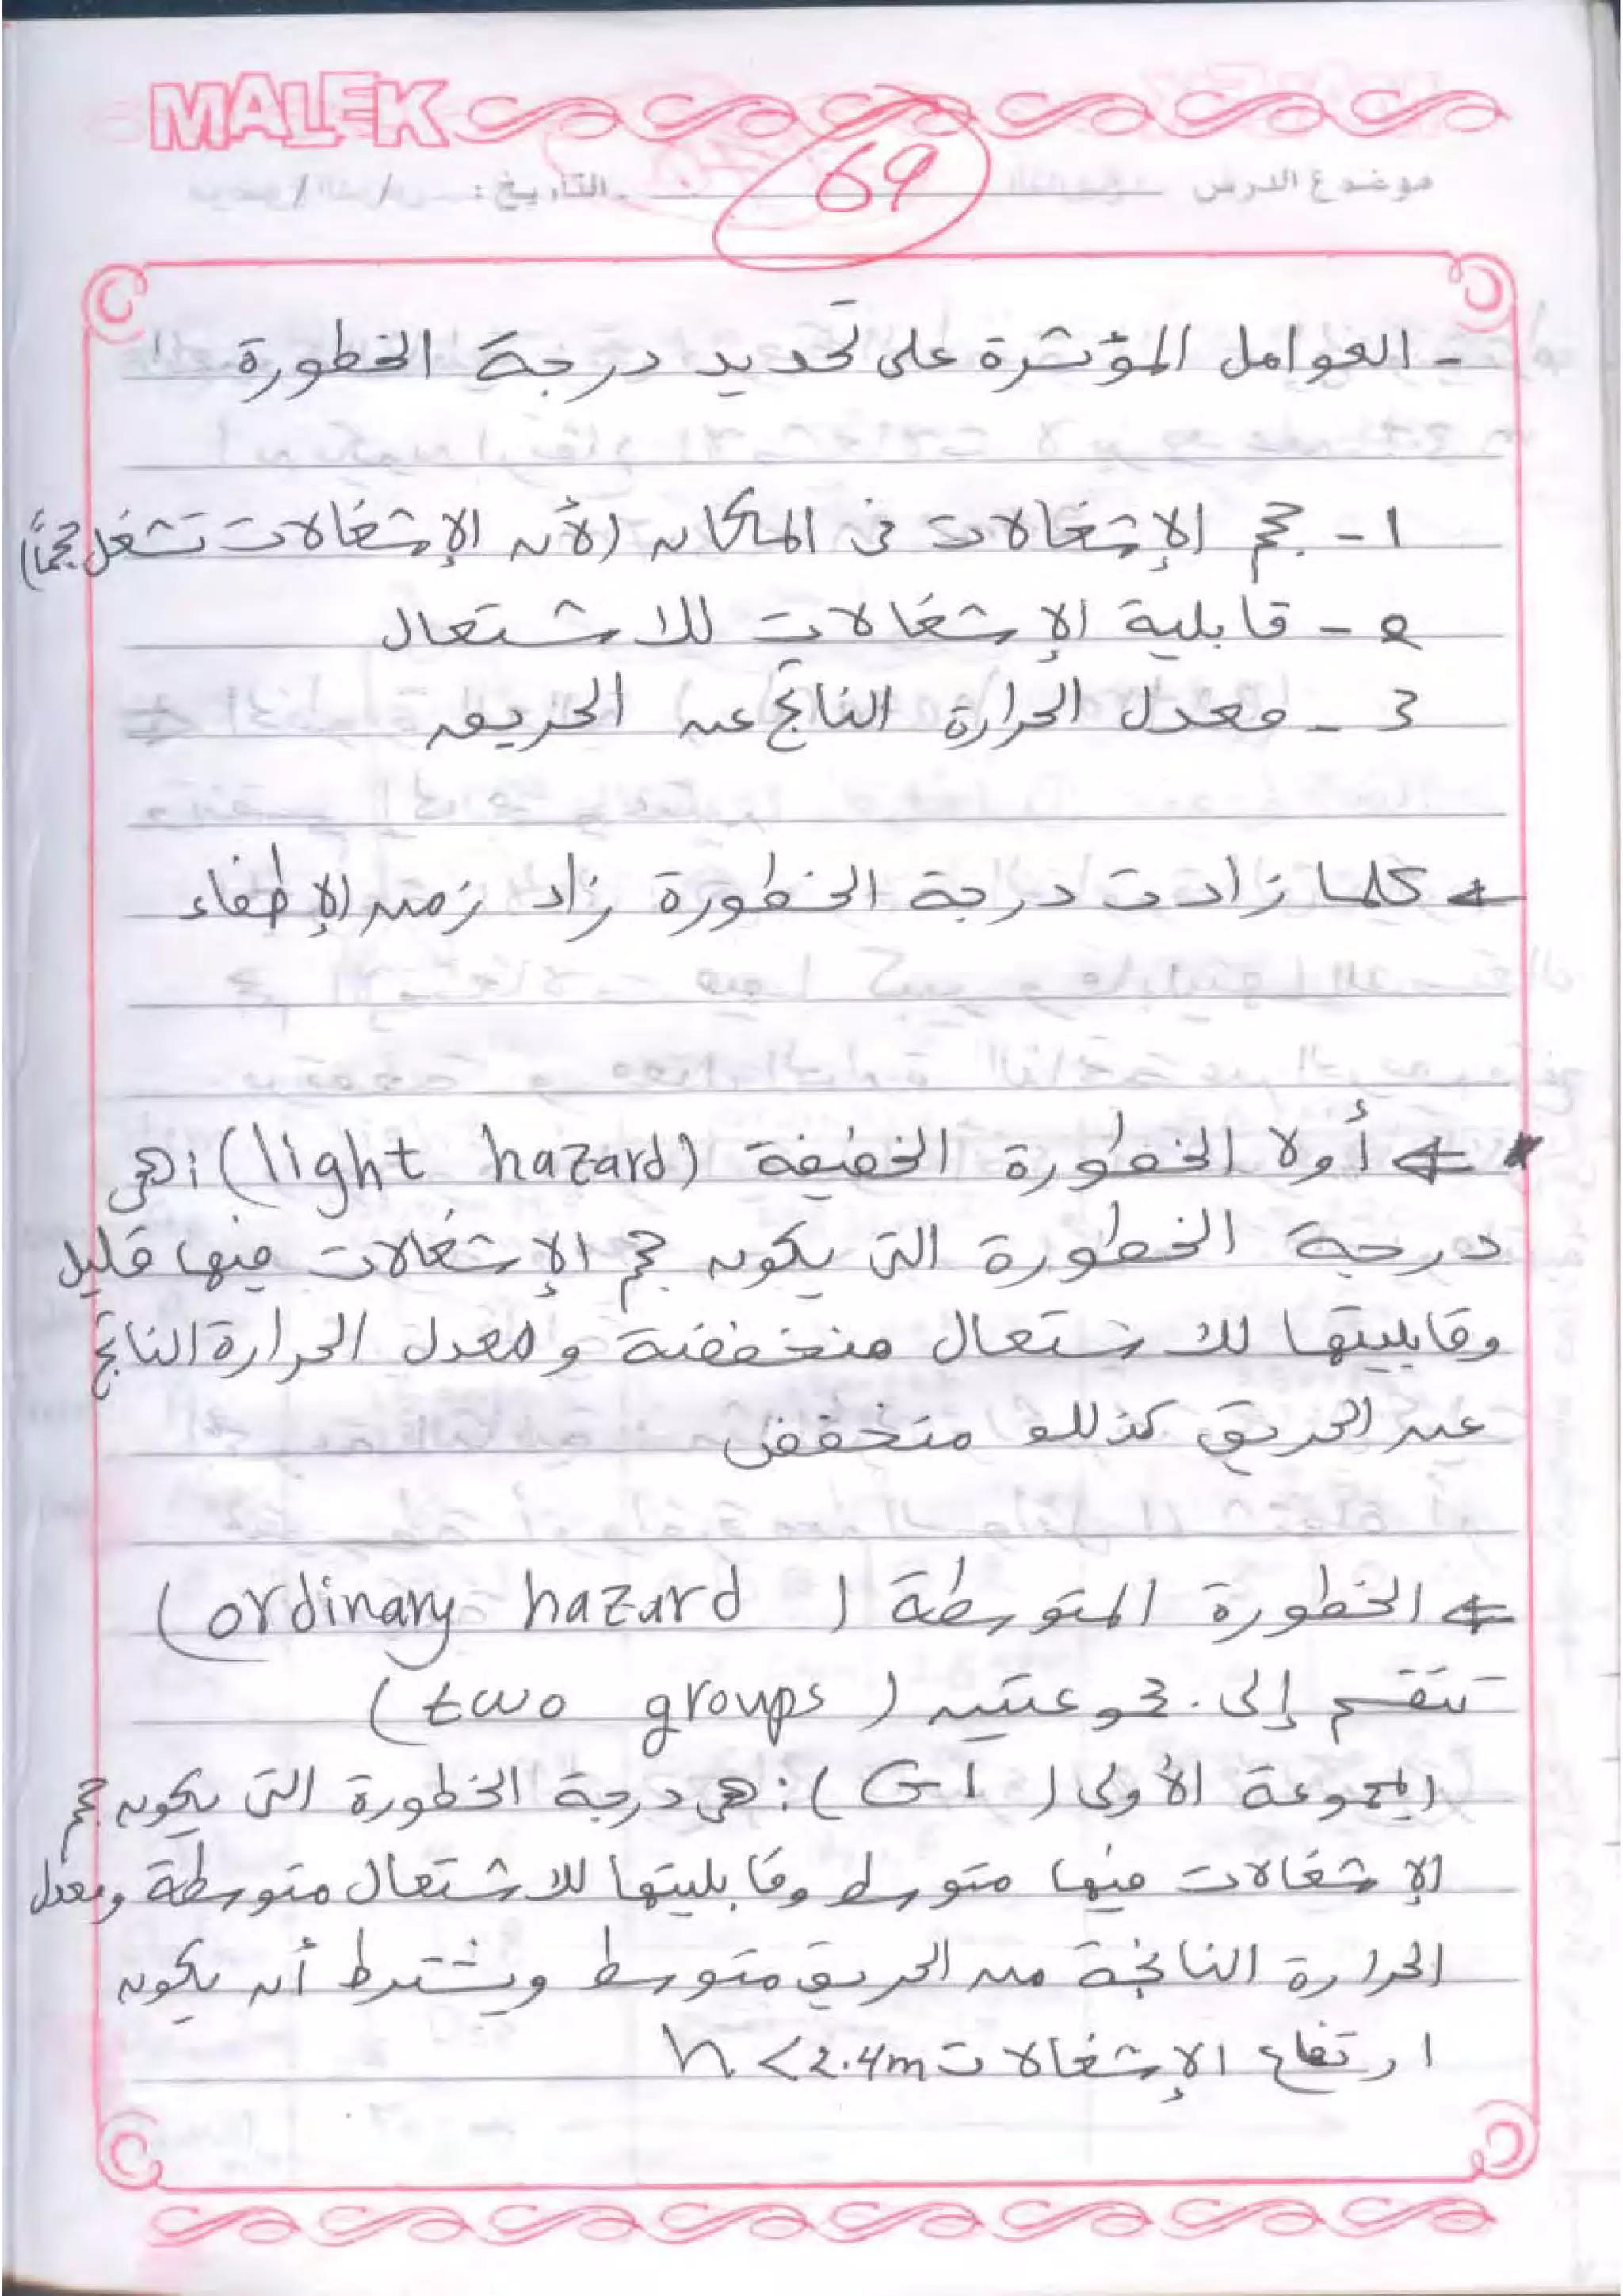 MALEK
69
موضوع الدرس التاريخ: / /
- العوامل المؤثرة على تحديد درجة الخطورة
1- حجم الإشغالات فى المكان (لأن الإشغالات تشغل حجماً)
2- قابلية الإشغالات للاشتعال
3- معدل الحرارة الناتج عن الحريق
← كلما زادت درجة الخطورة زاد زمن الإطفاء
← أولا الخطورة الخفيفة (light hazard): هى
درجة الخطورة التى يكون حجم الإشغالات فيها قليل
وقابليتها للاشتعال منخفضة ومعدل الحرارة الناتج
عن الحريق كذلك منخفض
← الخطورة المتوسطة (ordinary hazard)
تنقسم إلى مجموعتين (two groups)
المجموعة الأولى (G1): هى درجة الخطورة التى يكون حجم
الإشغالات فيها متوسط وقابليتها للاشتعال متوسطة ومعدل
الحرارة الناتجة من الحريق متوسط ويشترط أن يكون
ارتفاع الإشغالات h < 2.4m